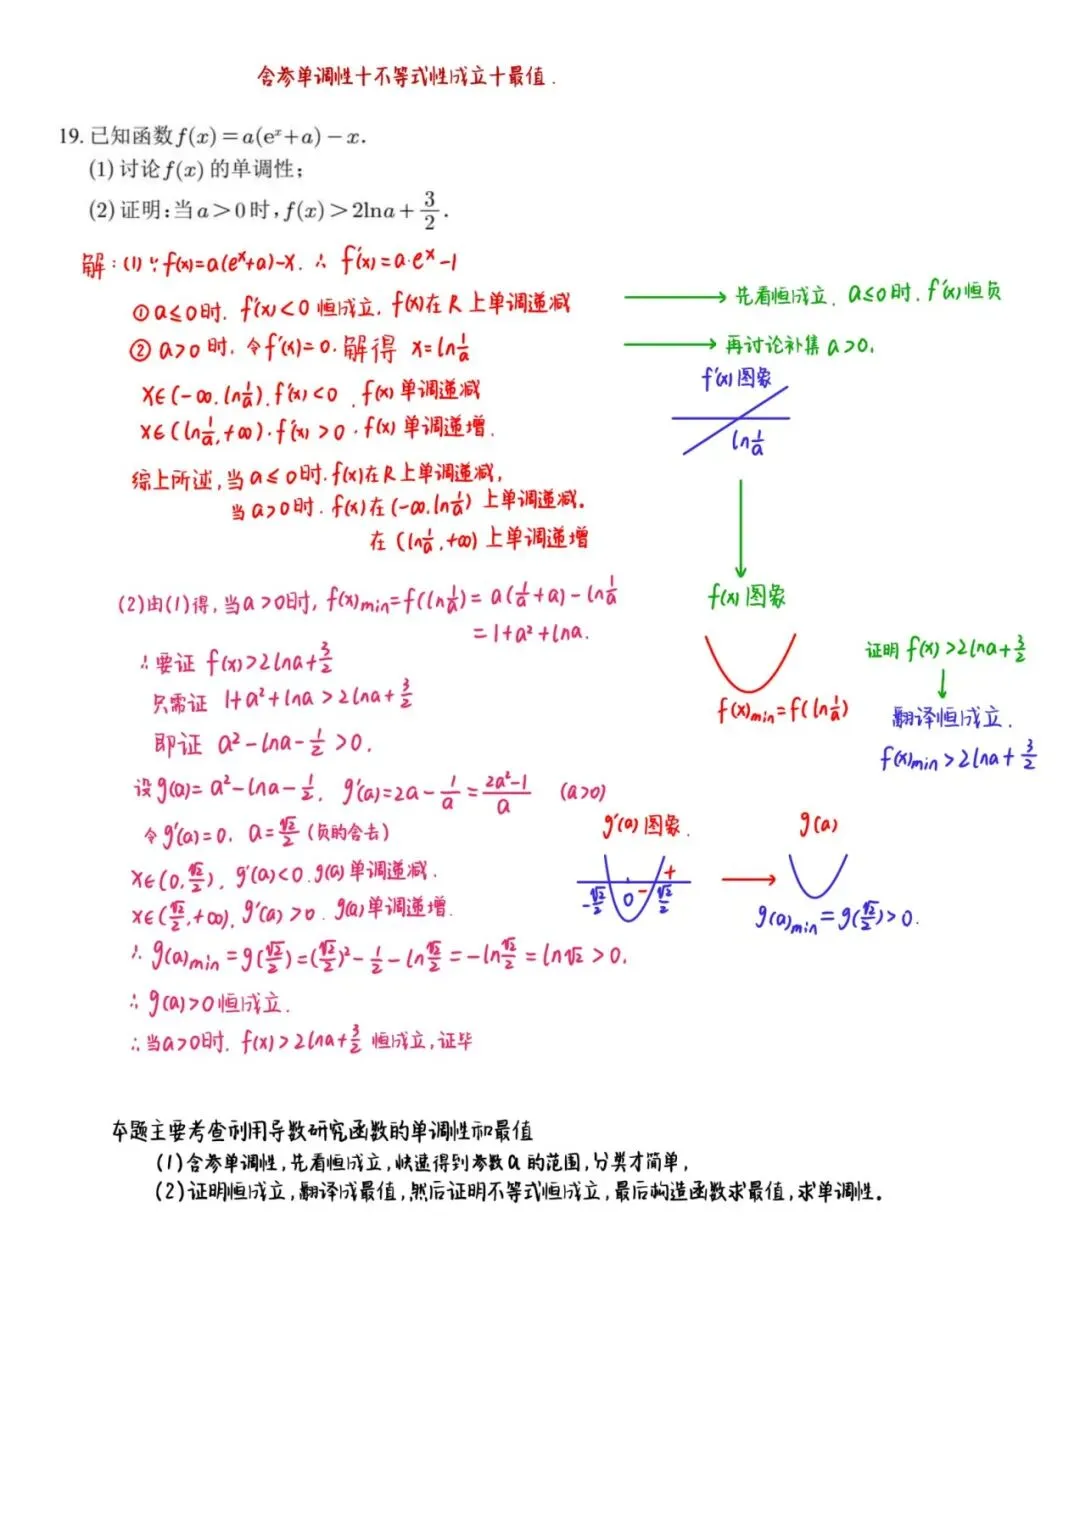 含参单调性+不等式性成立+最值.
19. 已知函数f(x)=a(eˣ+a)-x.
(1) 讨论f(x)的单调性;
(2) 证明:当a>0时,f(x)>2lna+3/2.
解:(1)∵f(x)=a(eˣ+a)-x. ∴ f′(x)=a·eˣ-1
①a≤0时. f′(x)<0 恒成立, f(x)在R上单调递减
→ 先看恒成立. a≤0时. f′(x)恒负
② a>0时. 令f′(x)=0. 解得 x=ln1/a
→ 再讨论补集 a>0.
f′(x)图象
ln1/a
x∈(-∞.ln1/a).f′(x)<0 . f(x)单调递减
x∈(ln1/a,+∞).f′(x)>0 . f(x)单调递增.
综上所述,当a≤0时.f(x)在R上单调递减,
当a>0时. f(x)在(-∞.ln1/a)上单调递减.
在(ln1/a,+∞)上单调递增
f(x)图象
(2)由(1)得,当a>0时, f(x)min=f(ln1/a)=a(1/a+a)-ln1/a
=1+a²+lna.
∴要证 f(x)>2lna+3/2
只需证 1+a²+lna>2lna+3/2
即证 a²-lna-1/2>0.
f(x)min=f(ln1/a)
证明f(x)>2lna+3/2
↓
翻译恒成立.
f(x)min>2lna+3/2
设g(a)=a²-lna-1/2. g′(a)=2a-1/a=2a²-1/a (a>0)
令g′(a)=0. a=√2/2(负的舍去)
x∈(0,√2/2). g′(a)<0.g(a)单调递减.
x∈(√2/2,+∞). g′(a)>0. g(a)单调递增.
g′(a)图象.
-√2/2 0 - √2/2 +
→
g(a)
g(a)min=g(√2/2)>0.
∴ g(a)min=g(√2/2)=(√2/2)²-1/2-ln√2/2=-ln√2/2=ln√2>0.
∴ g(a)>0恒成立.
∴当a>0时. f(x)>2lna+3/2 恒成立,证毕
本题主要考查利用导数研究函数的单调性和最值
(1)含参单调性,先看恒成立,快速得到参数a的范围,分类才简单,
(2)证明恒成立,翻译成最值,然后证明不等式恒成立,最后构造函数求最值,求单调性.